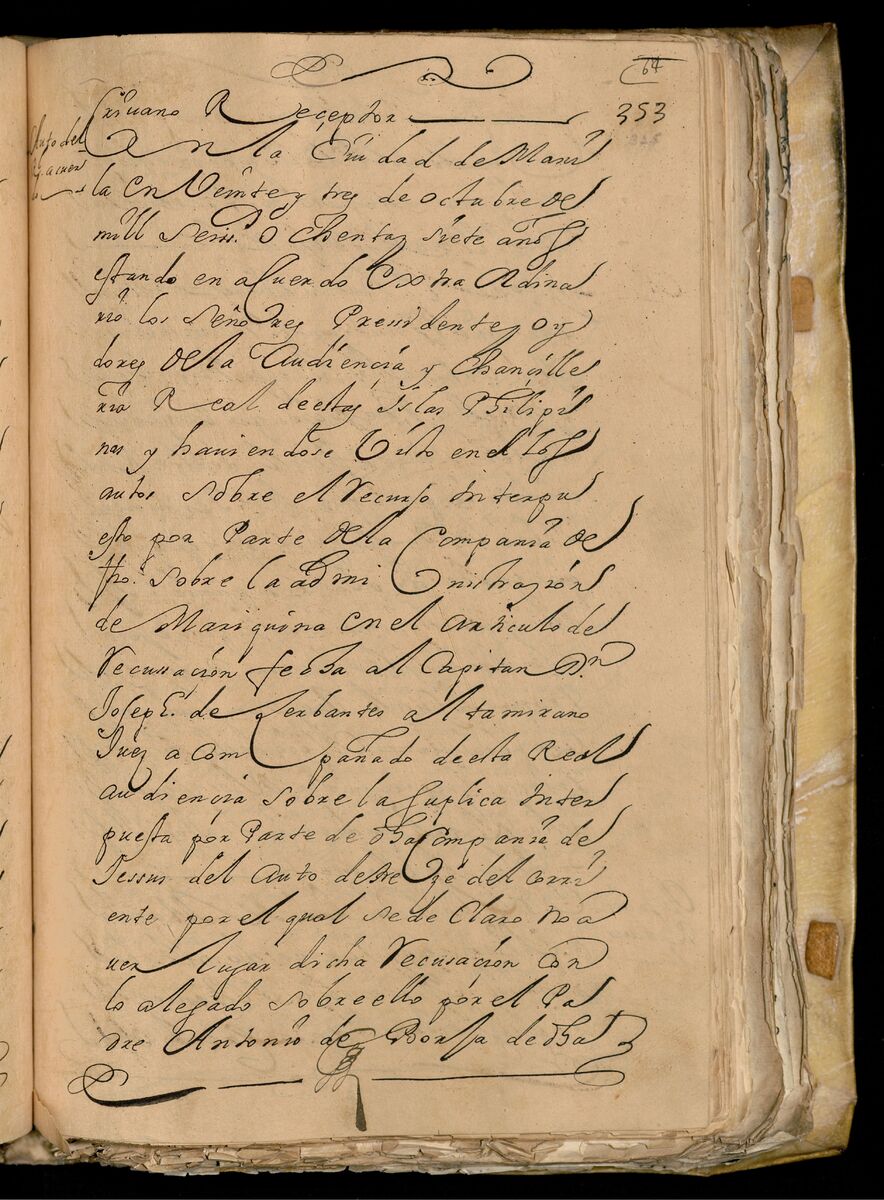 64
353
Criuano Receptor
Auto del
R. acuer
do
En la Ciudad de Mani
la en Veinte y tres de octubre de
mill seiss.º ochenta y siete años
estando en aCuerdo Extra Ordina
rio los Señores Pressidente y oy
dores de la Audiencia y Chancille
ria Real de estas islas Philipi
nas y hauiendose Visto en el los
autos sobre el Recurso interpu
esto por Parte de la Compania de
Jhs. sobre la admi nistrazion
de Mariquina en el articulo de
Recussacion fecha al Capitan Dn
Joseph. de Zerbantes altamirano
Juez acom pañado de esta Real
audiencia sobre la suplica inter
puesta por Parte de dha Compania de
Jessus del auto de treze del corri
ente por el qual se de Claro no a
uer lugar dicha Recusacion Con
lo alegado sobre ello por el Pa
dre Antonio de Borja de dha